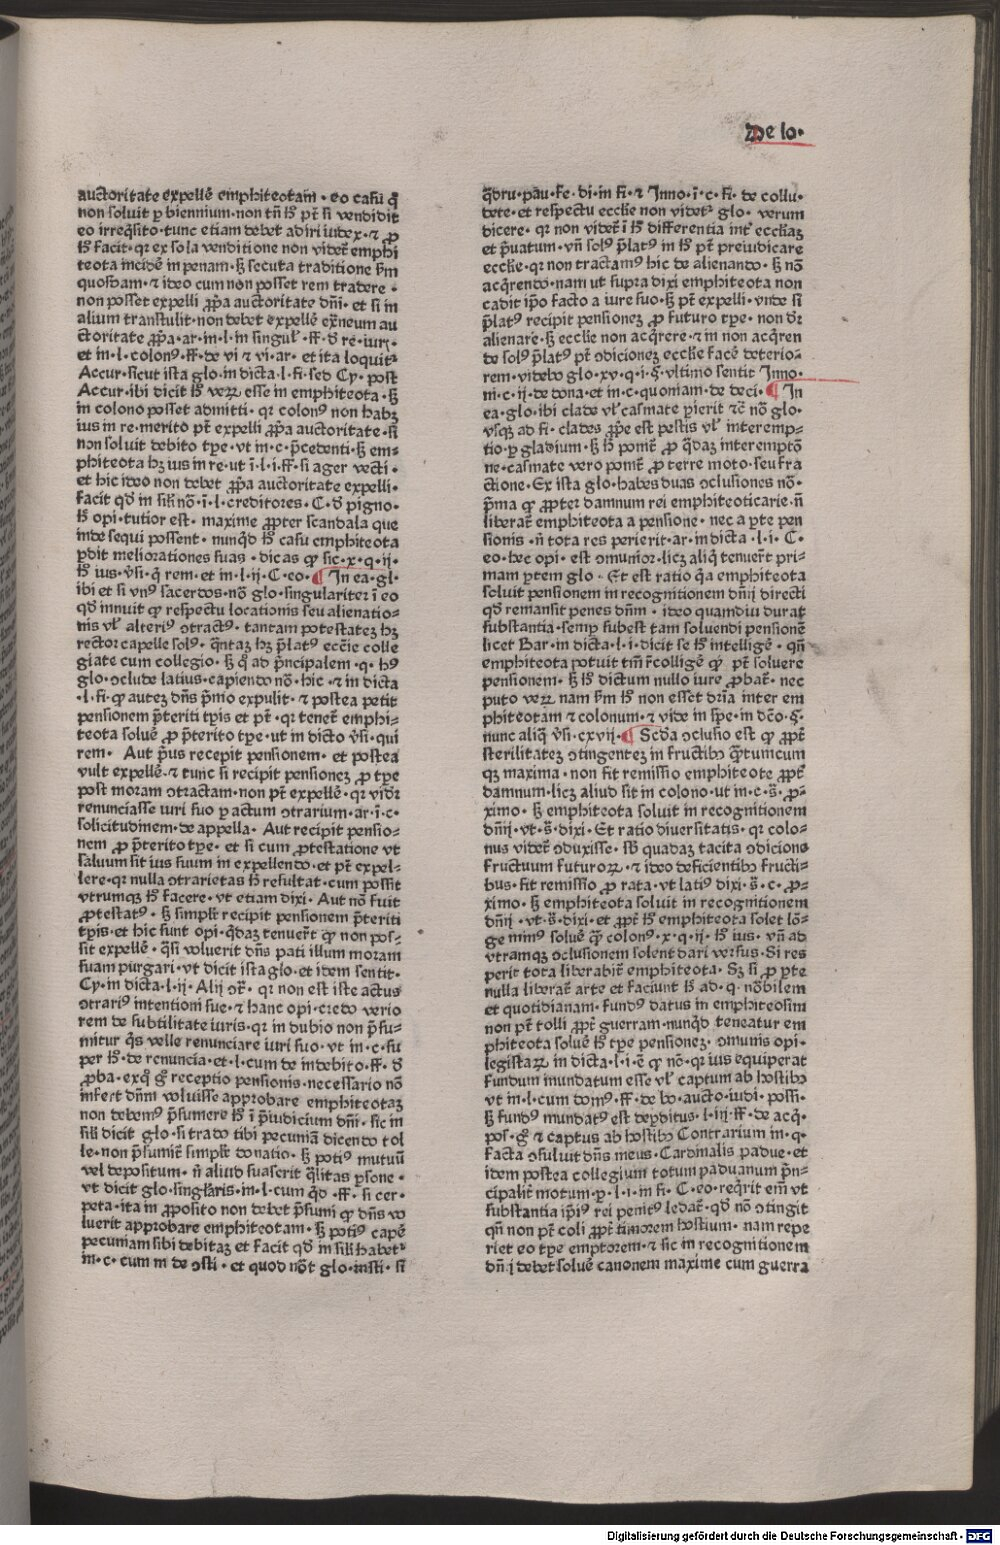 De lo·
auctoritate expellē emphiteotam · eo casu q̄
non soluit ꝑ biennium·non tn̄ hͦ pt̄ si vendidit
eo irreq̄sito·tunc etiam debet adiri iudex·⁊ ꝓ
hͦ facit·qꝛ ex sola venditione non videt̄ emphi
teota incidē in penam·ꝫ secuta traditione ẜm
quosdam·⁊ ideo cum non posset rem tradere ·
non posset expelli ꝓpͥa auctoritate dn̄i· et si in
alium transtulit·non debet expellē ex̄neum au
ctoritate ꝓpͥa·ar·in·l·in singul̕·ff·ꝺ re·iur·
et in·l·colonꝰ·ff·de vi ⁊ vi·ar· et ita loquit̕
Accur·sicut ista glo·in dicta·l·fi·sed Cy· post
Accur·ibi dicit hͦ veꝝ esse in emphiteota·ꝫ
in colono posset admitti· qꝛ colonꝰ non habꝫ
ius in re·merito pt̄ expelli ꝓpͥa auctoritate·si
non soluit debito tꝑe·vt in·c·p̄cedenti·ꝫ em-
phiteota hꝫ ius in re·ut ī·l·i·ff·si ager vecti·
et hic ideo non debet ꝓpͥa auctoritate expelli·
facit qd̄ in sili nō·ī·l·creditores·C·ꝺ pigno·
hͦ opi·tutior est· maxime ꝓpter scandala que
inde sequi possent· nunqd̄ hͦ casu emphiteota
ꝑdit meliorationes suas·dicas ꝙ sic·x·q·ij·
hͦ ius·v̕si·q̄ rem·et in·l·ij·C·eo·¶ In ea·gl·
ibi et si vnꝰ sacerdos·nō glo·singulariter ī eo
qd̄ innuit ꝙ respectu locationis seu alienatio-
nis vl̕ alteriꝰ ↄtractꝰ· tantam potestatez hꝫ
rector capelle solꝰ· q̄ntaꝫ hꝫ p̄latꝰ ecc̄ie colle
giate cum collegio·ꝫ q̊ ad pͥncipalem·q·hꝰ
glo·ↄclude latius·capiendo nō·hic·⁊ in dicta
·l·fi·ꝙ autez dn̄s pͥmo expulit·⁊ postea petit
pensionem p̄teriti tꝑis et pt̄·qꝛ tenet̄ emphi-
teota soluē ꝓ p̄terito tꝑe·ut in dicto v̕si·qui
rem· Aut pͥus recepit pensionem· et postea
vult expellē·⁊ tunc si recipit pensionez ꝓ tꝑe
post moram ↄtractam·non pt̄ expellē·qꝛ vidr̄
renunciasse iuri suo ꝑ actum ↄtrarium·ar·ī·c·
solicitudinem·de appella· Aut recipit pensio-
nem ꝓ p̄terito tꝑe· et si cum ꝓtestatione vt
saluum sit ius suum in expellendo·et pt̄ expel-
lere·qꝛ nulla ↄtrarietas hͦ resultat·cum possit
vtrumqꝫ hͦ facere·vt etiam dixi·Aut nō fuit
ꝓtestatꝰ·ꝫ simpl̕r recipit pensionem p̄teriti
tꝑis·et hic sunt opi·q̄daꝫ tenuer̄t ꝙ non pos-
sit expellē·q̄si voluerit dn̄s pati illum moram
suam purgari·vt dicit ista glo·et idem sentit·
Cy·in dicta·l·ij· Alij ↄr̄·qꝛ non est iste actus
ↄtrariꝰ intentioni sue·⁊ hanc opi·credo verio
rem de subtilitate iuris·qꝛ in dubio non p̄su-
mitur q̄s velle renunciare iuri suo·vt in·c·su
per hͦ·de renuncia·et·l·cum de indebito·ff·ꝺ
ꝓba·exq̊ gͦ receptio pensionis·necessario nō
infert dn̄m voluisse approbare emphiteotaꝫ
non debemꝰ p̄sumere hͦ ī p̄iudicium dn̄i·sic in
sili dicit glo·si trado tibi pecuniā dicendo tol
le·non p̄sumit̄ simpl̕r donatio·ꝫ potiꝰ mutuū
vel depositum·n̄ aliud suaserit q̄litas ꝑsone·
vt dicit glo·singl̕aris·in·l·cum qd̄·ff·si cer·
peta·ita in ꝓposito non debet p̄sumi ꝙ dn̄s vo
luerit approbare emphiteotam·ꝫ potiꝰ capē
pecuniam sibi debitaꝫ et facit qd̄ in sili habet̕
in·c·cum m̄ de ↄsti· et quod nōt glo·insti·si
q̄dru·pau·fe·di·in fi·⁊ Inno·ī·c·fi·de collu·
dete·et respectu eccl̕ie non videt̕ glo· verum
dicere· qꝛ non videt̄ ī hͦ differentia int̕ eccl̕iaꝫ
et pͥuatum·vn̄ solꝰ p̄latꝰ in hͦ pt̄ preiudicare
eccl̕ie·qꝛ non tractamꝰ hic de alienando·ꝫ nō
acq̄rendo·nam ut supra dixi emphiteota non
cadit ip̄o facto a iure suo·ꝫ pt̄ expelli·vnde si
p̄latꝰ recipit pensionez ꝓ futuro tꝑe·non dr̄
alienare·ꝫ eccl̕ie non acq̄rere·⁊ in non acq̄ren
de solꝰ p̄latꝰ pt̄ ↄdicionez eccl̕ie facē deterio-
rem·videbo glo·xv·q·i·§·vltimo sentit Inno·
in·c·ij·de dona·et in·c·quoniam·de deci·¶ In
ea·glo·ibi clade vl̕ casmate ꝑierit ⁊c̄ nō glo·
vsqꝫ ad fi·clades ꝓpͥe est pestis vl̕ interemp-
tio·ꝑ gladium·ꝫ hͦ ponit̄ ꝓ q̄daꝫ interemptō
ne·casmate vero ponit̄ ꝓ terre motu·seu fra
ctione·Ex ista glo·habes duas ↄclusiones nō·
pͥma ꝙ ꝓpter damnum rei emphiteoticarie·n̄
liberat̄ emphiteota a pensione· nec a ꝑte pen
sionis·n̄ tota res perierit·ar·in dicta·l·i·C·
eo·hec opi· est ↄmunior·licꝫ aliq̄ tenuer̄t pri-
mam ꝑtem glo·Et est ratio qͥa emphiteota
soluit pensionem in recognitionem dn̄ij directi
qd̄ remansit penes dn̄m·ideo quamdiu durat
substantia·semꝑ subest tam soluendi pensionē
licet Bar·in dicta·l·i·dicit se hͦ intelligē· qn̄
emphiteota potuit tm̄ r̄colligē ꝙ pt̄ soluere
pensionem·ꝫ hͦ dictum nullo iure ꝓbat̄· nec
puto veꝝ nam ẜm hͦ non esset dr̄ia inter em
phiteotam ⁊ colonum·⁊ vide in spe·in dc̄o·§·
nunc aliq̄ v̕si·cxvij·¶ Scd̄a ↄclusio est ꝙ ꝓpt̄
sterilitatez ↄtingentez in fructibꝰ q̄ntumcum
qꝫ maxima·non fit remissio emphiteote ꝓpt̄
damnum·licꝫ aliud sit in colono·ut in·c·s̄·ꝓ-
ximo·ꝫ emphiteota soluit in recognitionem
dn̄ij·vt·s̄·dixi·Et ratio diuersitatis·qꝛ colo-
nus videt̄ ↄduxisse·sb̄ quadaꝫ tacita ↄdicione
fructuum futuroꝝ·⁊ ideo deficientibꝰ fructi-
bus·fit remissio ꝓ rata·vt latiꝰ dixi·s̄·c·ꝓ-
ximo·ꝫ emphiteota soluit in recognitionem
dn̄ij·vt·s̄·dixi·et ꝓpt̄ hͦ emphiteota solet lō-
ge minꝰ soluē q̄ꝫ colonꝰ·x·q·ij·hͦ ius·vn̄ ad
vtramqꝫ ↄclusionem solent dari versus·Si res
perit tota liberabit̄ emphiteota·Sꝫ si ꝓ ꝑte
nulla liberat̄ arte et faciunt hͦ ad·q·nobilem
et quotidianam·fundꝰ datus in emphiteosim
non pt̄ tolli ꝓpt̄ guerram·nunqd̄ teneatur em
phiteota soluē hͦ tꝑe pensionez·ↄmunis opi·
legistaꝝ in dicta·l·i·ē ꝙ nō·qꝛ uis equiperat
fundum inundatum esse vl̕ captum ab hostibꝰ
vt in·l·cum domꝰ·ff·de bo·aucto·iudi·possi·
ꝫ fundꝰ inundatꝰ est deꝑditus·l·iij·ff·de acq̄·
pos·gͦ ⁊ captus ab hostibꝰ Contrarium in·q·
facta ↄsuluit dn̄s meus·Cardinalis padue·et
idem postea collegium totum paduanum pͥn-
cipalit̄ motum·ꝑ·l·i·in fi·C·eo·req̄rit em̄ vt
substantia ip̄iꝰ rei penitꝰ ledat̄·qd̄ nō ↄtingit
qn̄ non pt̄ coli ꝓpt̄ timorem hostium·nam repe
riet eo tꝑe emptorem·⁊ sic in recognitionem
dn̄ij debet soluē canonem maxime cum guerra
Digitalisierung gefördert durch die Deutsche Forschungsgemeinschaft - DFG